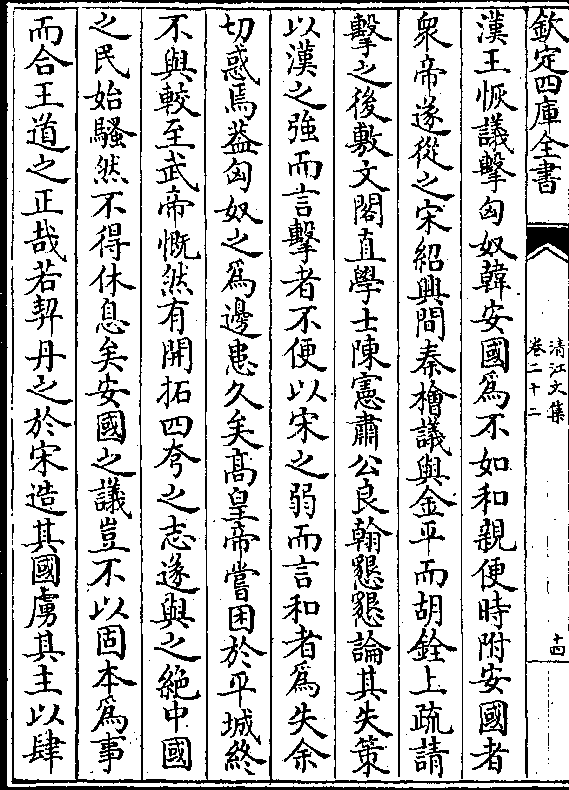 欽定四庫全書
清江文集
卷二十二
十四
漢王恢議擊匈奴韓安國為不如和親便時附安國者
衆帝遂從之宋紹興間秦檜議與金平而胡銓上疏請
擊之後敷文閣直學士陳憲肅公良翰懇懇論其失策
以漢之強而言擊者不便以宋之弱而言和者為失余
切惑焉葢匈奴之為邊患久矣髙皇帝嘗困於平城終
不與較至武帝慨然有開拓四夸之志遂與之絶中國
之民始騷然不得休息矣安國之議豈不以固本為事
而合王道之正哉若契丹之於宋造其國虜其主以肆